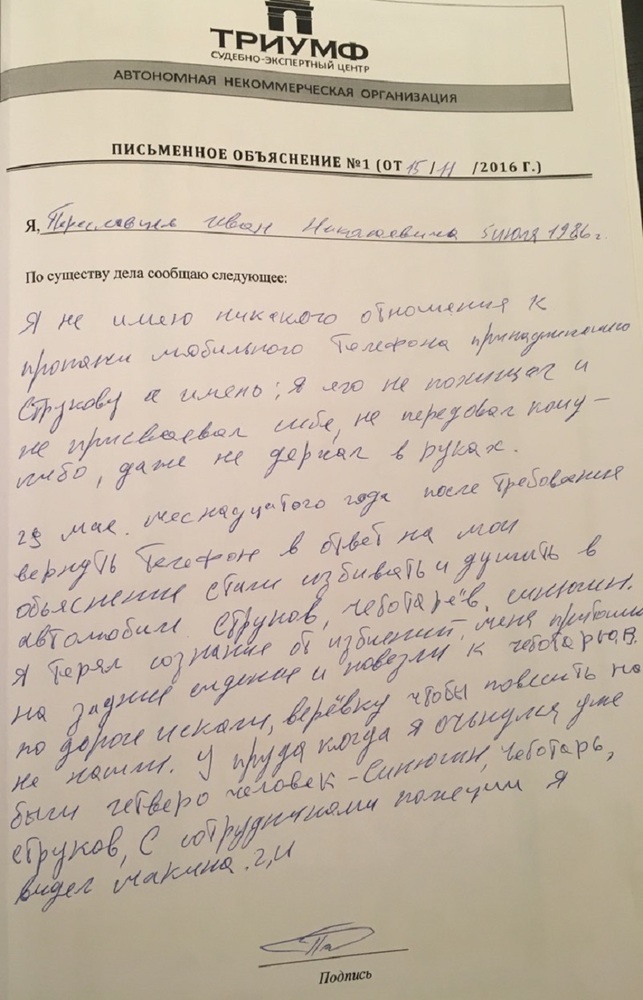 ТРИУМФ
СУДЕБНО-ЭКСПЕРТНЫЙ ЦЕНТР
АВТОНОМНАЯ НЕКОММЕРЧЕСКАЯ ОРГАНИЗАЦИЯ
ПИСЬМЕННОЕ ОБЪЯСНЕНИЕ №1 (ОТ 15/11 /2016 Г.)
Я, Иван Николаевич 5 июля 1986 г.
По существу дела сообщаю следующее:
Я не имею никакого отношения к
пропажи мобильного телефона принадлежащего
Струкову а имень; я его не похищал и
не присваевал себе, не передовал кому-
либо, даже не держал в руках.
29 мая. шеснадцатого года после требования
вернуть телефон в ответ на мои
обьяснения стали избивать и душить в
автомобили Струков, Чеботарёв, Синюгин.
Я терял сознание от избиений, меня
на задние сидение и повезли к
по дороге искали, верёвку чтобы повесить но
не нашли. У пруда когда я очьнулся уже
были четверо человек - Синюгин, Чеботарь,
Струков, С сотрудниками полиции я
видел Макина. г,и
Подпись